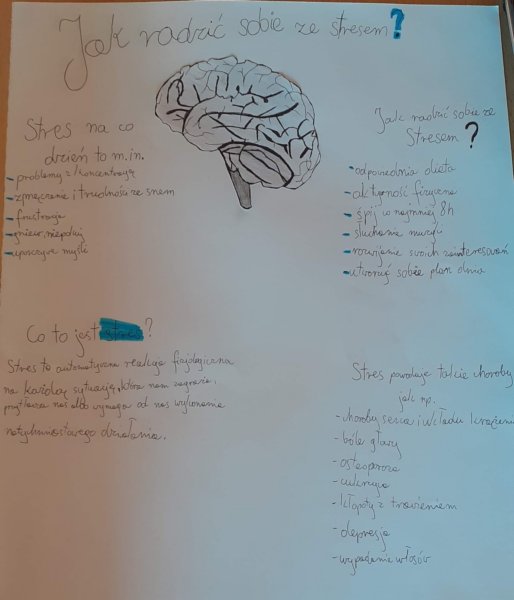 Jak radzić sobie ze stresem?
Stres na co
dzień to m.in.
- problemy z koncentracją
- zmęczenie i trudności ze snem
- frustracja
- gniew, niepokój
- uporczywe myśli
Jak radzić sobie ze
Stresem?
- odpowiednia dieta
- aktywność fizyczna
- śpij co najmniej 8h
- słuchanie muzyki
- rozwijanie swoich zainteresowań
- utwórz sobie plan dnia
Co to jest stres?
Stres to automatyczna reakcja fizjologiczna
na każdą sytuację, która nam zagraża,
przytłacza nas albo wymaga od nas wykonania
natychmiastowego działania.
Stres powoduje takie choroby
jak np.
- choroby serca i układu krążenia
- bóle głowy
- osteoporoza
- cukrzyca
- kłopoty z trawieniem
- depresja
- wypadanie włosów